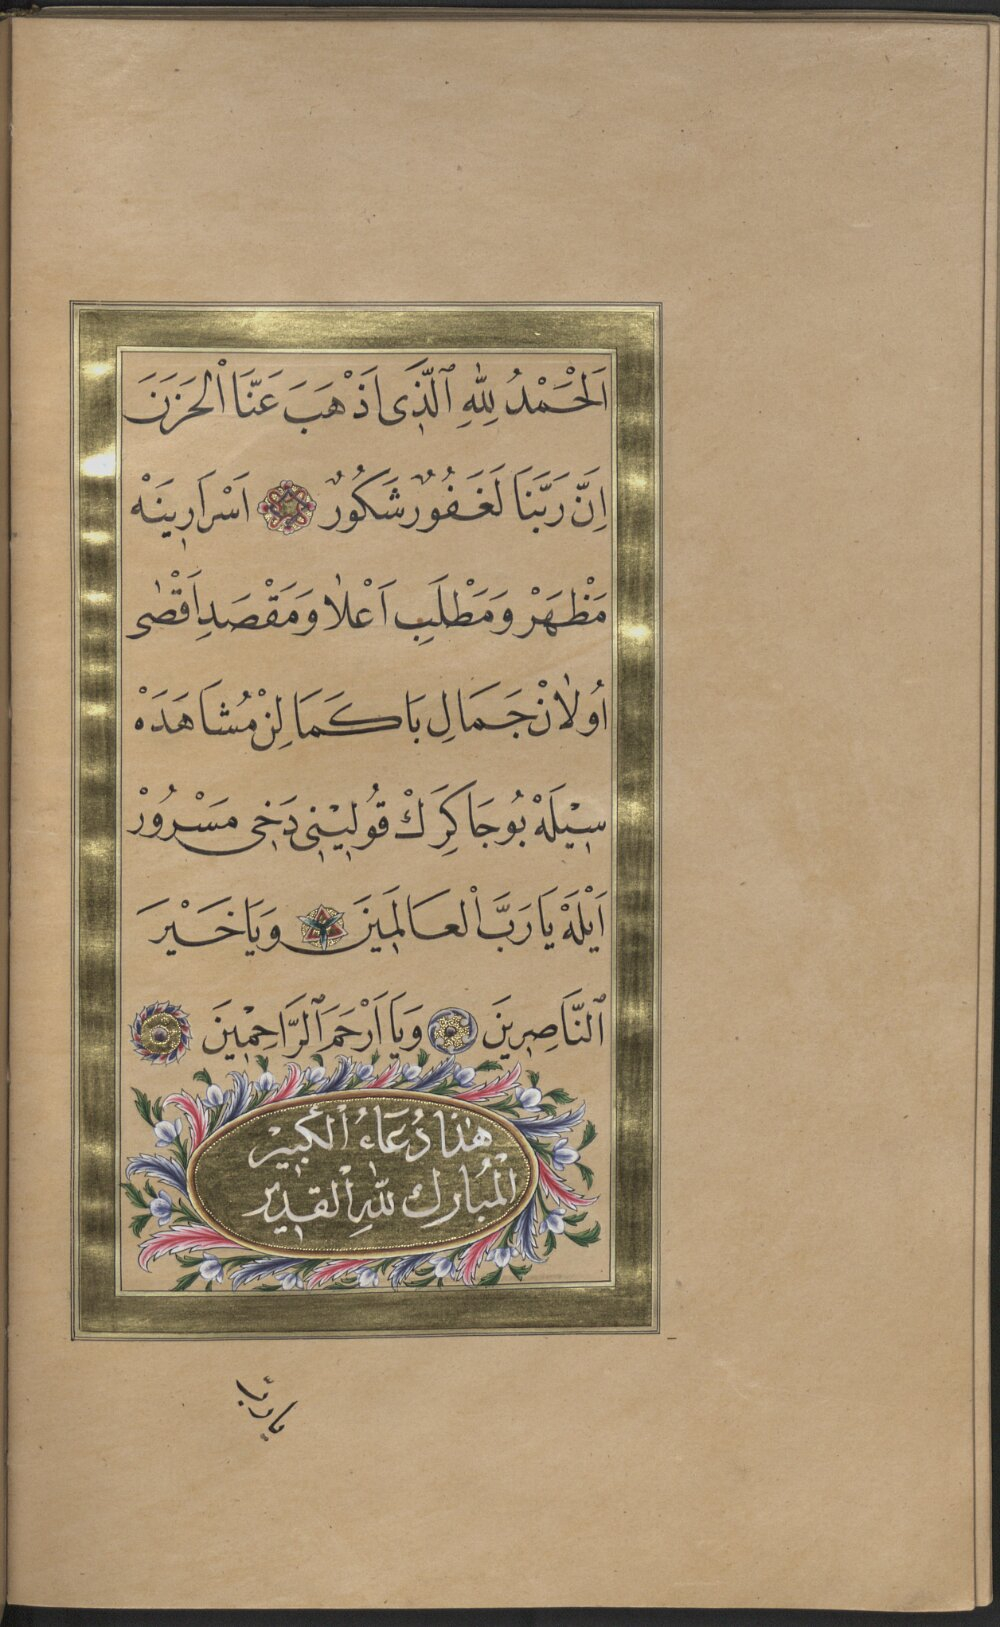 اَلْحَمْدُ لِلّٰهِ ٱلَّذِى اَذْهَبَ عَنَّا اْلحَزَنَ
اِنَّ رَبَّنَا لَغَفُورٌ شَكُورٌ اَسْرَارِينَهْ
مَظْهَرْ وَمَطْلَبِ اَعْلَا وَمَقْصَدِ اَقْصٰى
اُولَانْ جَمَالِ بَا كَمَالِنْ مُشَاهَدَهْ
سِيْلَهْ بُوجَا كِرَكْ قُولِيْنِى دَخِى مَسْرُورْ
اَيْلَهْ يَا رَبَّ اْلعَالَمِينَ وَيَا خَيْرَ
ٱلنَّاصِرِينَ وَيَا اَرْحَمَ ٱلرَّاحِمِينَ
هٰذَا دُعَاءُ اْلكَبِيْرْ
اْلمُبَارك لِلّٰهِ اْلقَدِيرْ
يا ربّ